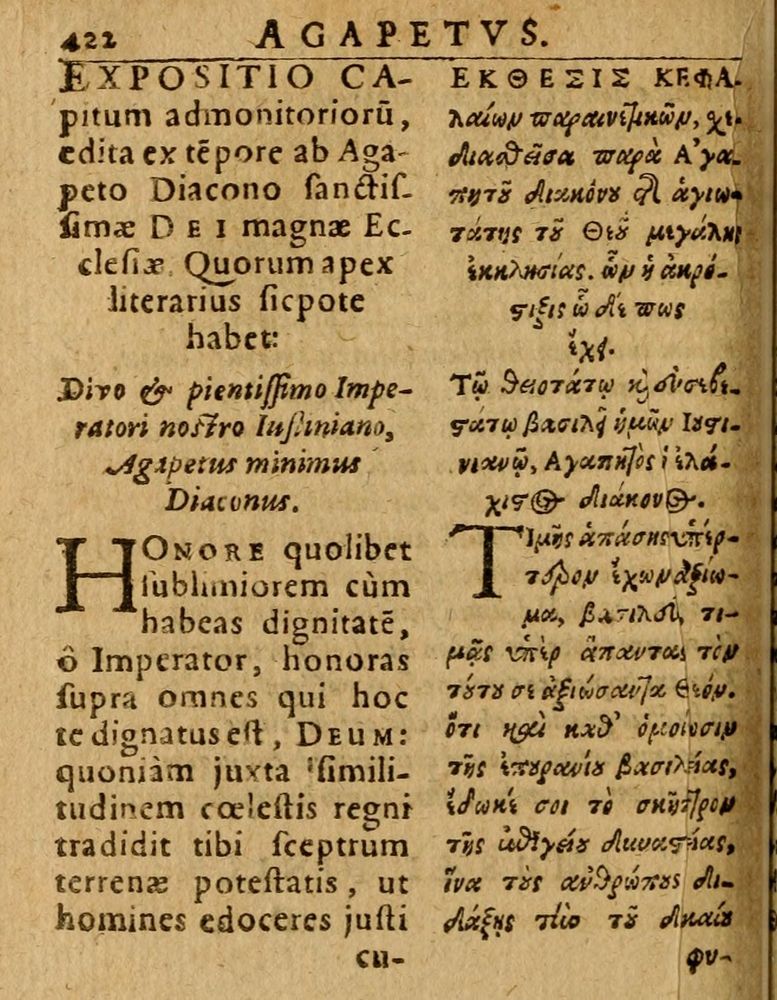 422 AGAPETVS.
EXPOSITIO CA-
pitum admonitoriorū,
edita ex tēpore ab Aga-
peto Diacono ſanctiſ-
ſimæ DEI magnæ Ec-
cleſiæ. Quorum apex
literarius ſicpote
habet:
Divo & pientiſſimo Impe-
ratori noſtro Iuſtiniano,
Agapetus minimus
Diaconus.
HONORE quolibet
ſublimiorem cùm
habeas dignitatē,
ô Imperator, honoras
ſupra omnes qui hoc
te dignatus eſt, DEUM:
quoniàm juxta ſimili-
tudinem cœleſtis regni
tradidit tibi ſceptrum
terrenæ poteſtatis, ut
homines edoceres juſti
cu-
ΕΚΘΕΣΙΣ ΚΕΦΑ-
λαίων παραινετικῶν, χε-
διασθεῖσα παρὰ Ἀγα-
πητοῦ διακόνου τῆς ἁγιω-
τάτης τοῦ Θεοῦ μεγάλης
ἐκκλησίας. ὧν ἡ ἀκρό-
ςιξις ὧδέ πως
ἔχει.
Τῷ θειοτάτῳ καὶ εὐσεβε-
ςάτῳ βασιλεῖ ἡμῶν Ιουςι-
νιανῷ, Αγαπητὸς ὁ ἐλά-
χιςος διάκονος.
Τιμῆς ἁπάσης ὑπέρ-
τερον ἔχων ἀξίω-
μα, βασιλεῦ, τι-
μᾷς ὑπὲρ ἅπαντας τὸν
τούτου σε ἀξιώσαντα Θεόν.
ὅτι καὶ καθ' ὁμοίωσιν
τῆς ἐπουρανίου βασιλείας,
ἔδωκέ σοι τὸ σκῆπτρον
τῆς ἐπιγείου δυναςείας,
ἵνα τοὺς ἀνθρώπους δι-
δάξῃς τὴν τοῦ δικαίου
φυ-